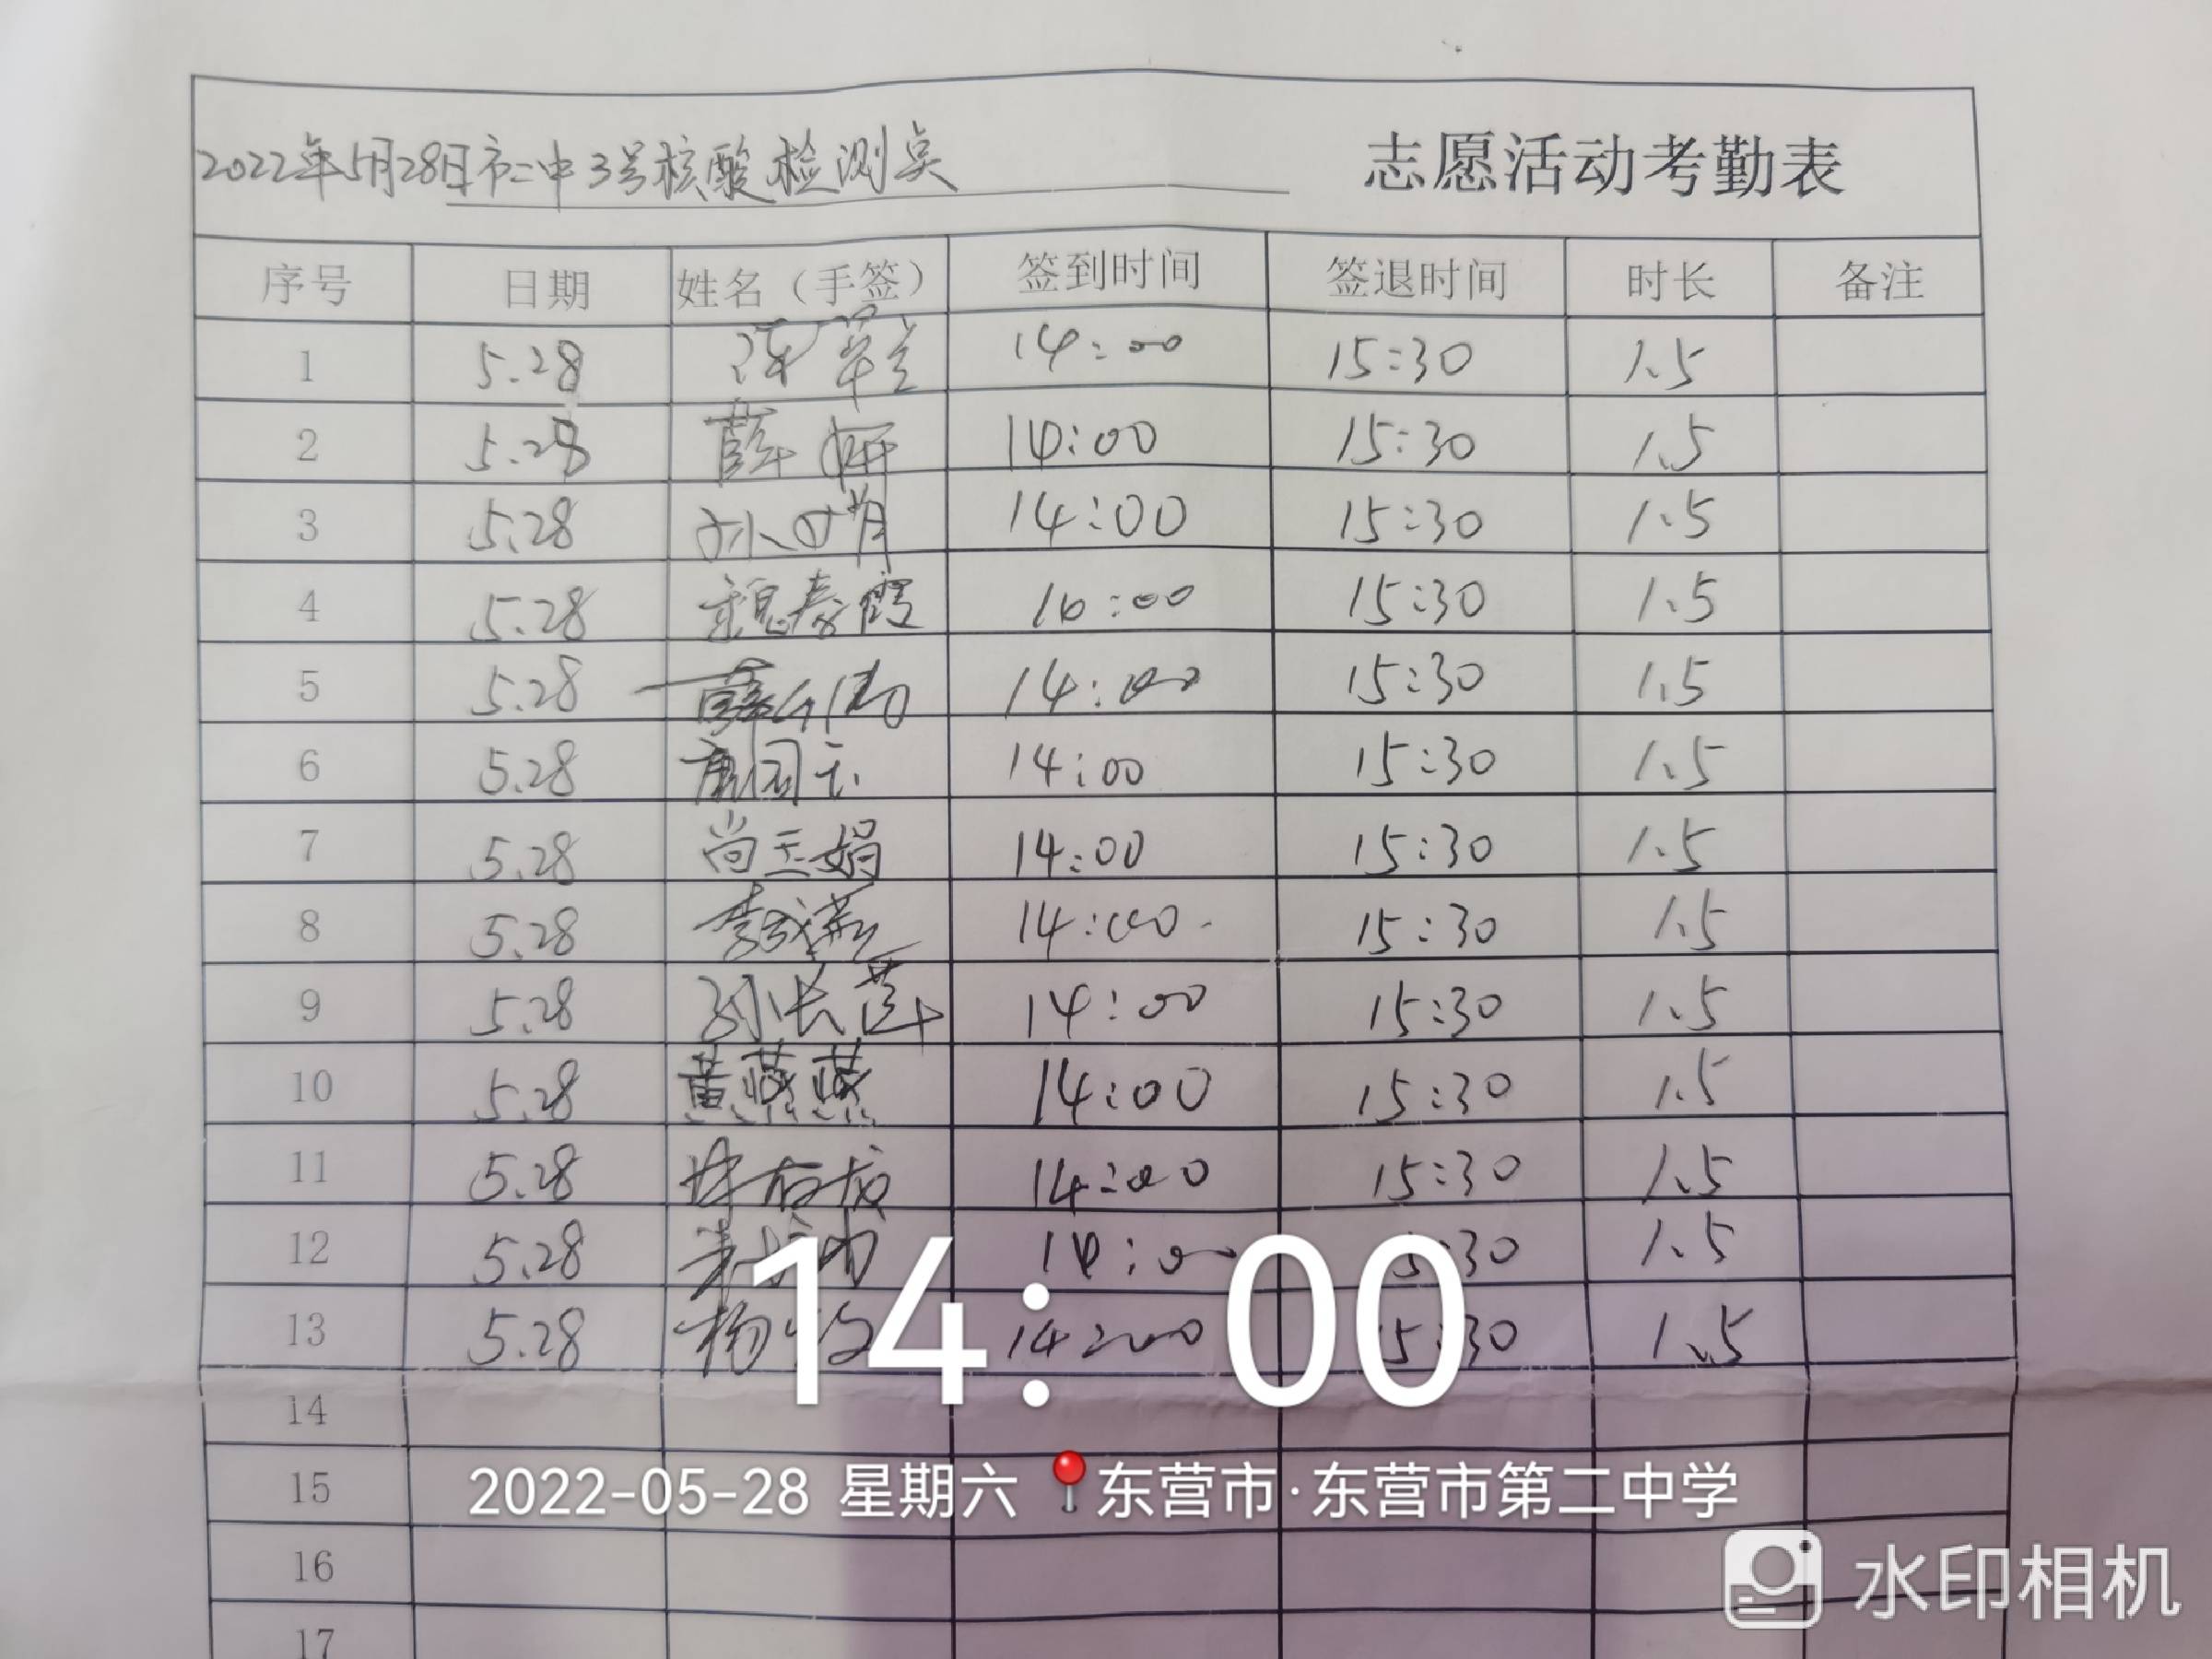 2022年5月28日市二中3号核酸检测点 志愿活动考勤表
序号 日期 姓名（手签） 签到时间 签退时间 时长 备注
1 5.28 14:00 15:30 1.5
2 5.28 薛妍 14:00 15:30 1.5
3 5.28 14:00 15:30 1.5
4 5.28 魏春霞 16:00 15:30 1.5
5 5.28 14:00 15:30 1.5
6 5.28 14:00 15:30 1.5
7 5.28 尚玉娟 14:00 15:30 1.5
8 5.28 14:00 15:30 1.5
9 5.28 孙长莲 14:00 15:30 1.5
10 5.28 黄燕燕 14:00 15:30 1.5
11 5.28 14:00 15:30 1.5
12 5.28 14:00 15:30 1.5
13 5.28 14:00 15:30 1.5
14:00
14
15
2022-05-28 星期六 东营市·东营市第二中学
16
水印相机
17